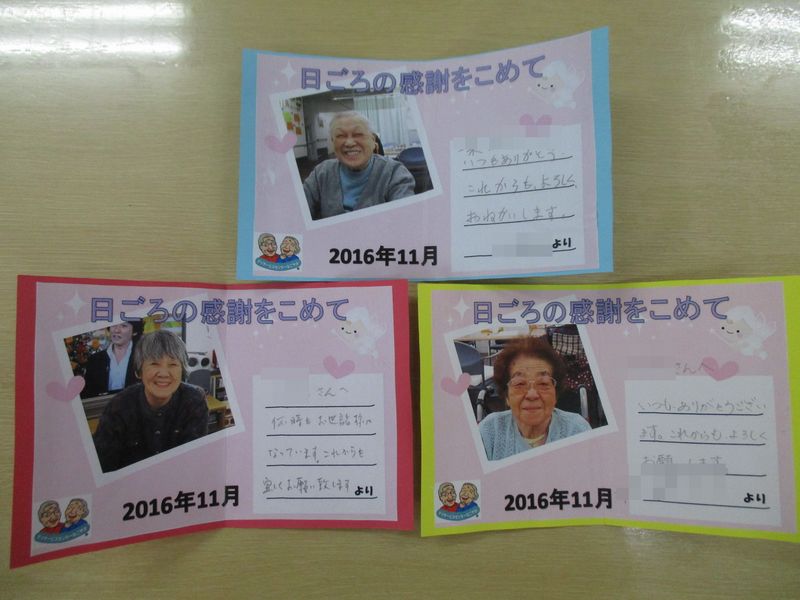 日ごろの感謝をこめて
いつもありがとう
これからも、よろしく
おねがいします。
より
2016年11月
日ごろの感謝をこめて
さんへ
何時もお世話様に
なっています。これからも
宜しくお願い致します
より
2016年11月
日ごろの感謝をこめて
さんへ
いつもありがとうござい
ます。これからもよろしく
お願いします
より
2016年11月